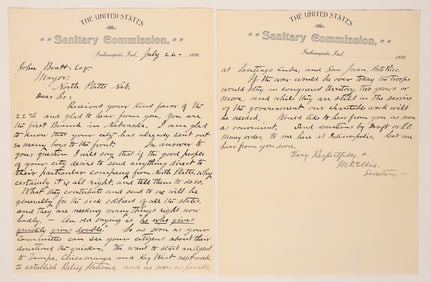 THE UNITED STATES
Sanitary Commission,
Indianapolis, Ind., July 26 - 189
John Bratt Esq.
Mayor,
North Platte Neb.
Dear Sir:
Received your kind favor of the
22nd and glad to hear from you, you are
the first Branch in Nebraska. I am glad
to know that your city has already sent out
so many boys to the front. In answer to
your question I will say that if the good people
of your city desire to send anything direct to
their particular company from North Platte, why
certainly it is all right and tell them to do so.
What they contribute and send to us will be
generally for the sick soldiers of all the states,
and they are needing many things right now
badly. An old saying is, he who gives
quickly gives double. So as soon as your
Committees can see your citizens about their
donations the quicker. We want to start an Agent
to Tampa, Chicamauga and Key West next week
to establish Relief Stations, and as soon as possible
THE UNITED STATES
Sanitary Commission,
Indianapolis, Ind., 189
at Santiago Cuba, and San Juan Porto Rico.
If the war would be over today the troops
would stay in conquered territory, two years or
more, and while they are still in the service
of the government our charitable work will
be needed. Would like to hear from you as soon
as convenient. Send donations by Draft or P.O.
Money order to me here at Indianapolis, but we
hear from you soon.
Very Respectfully,
Secretary.